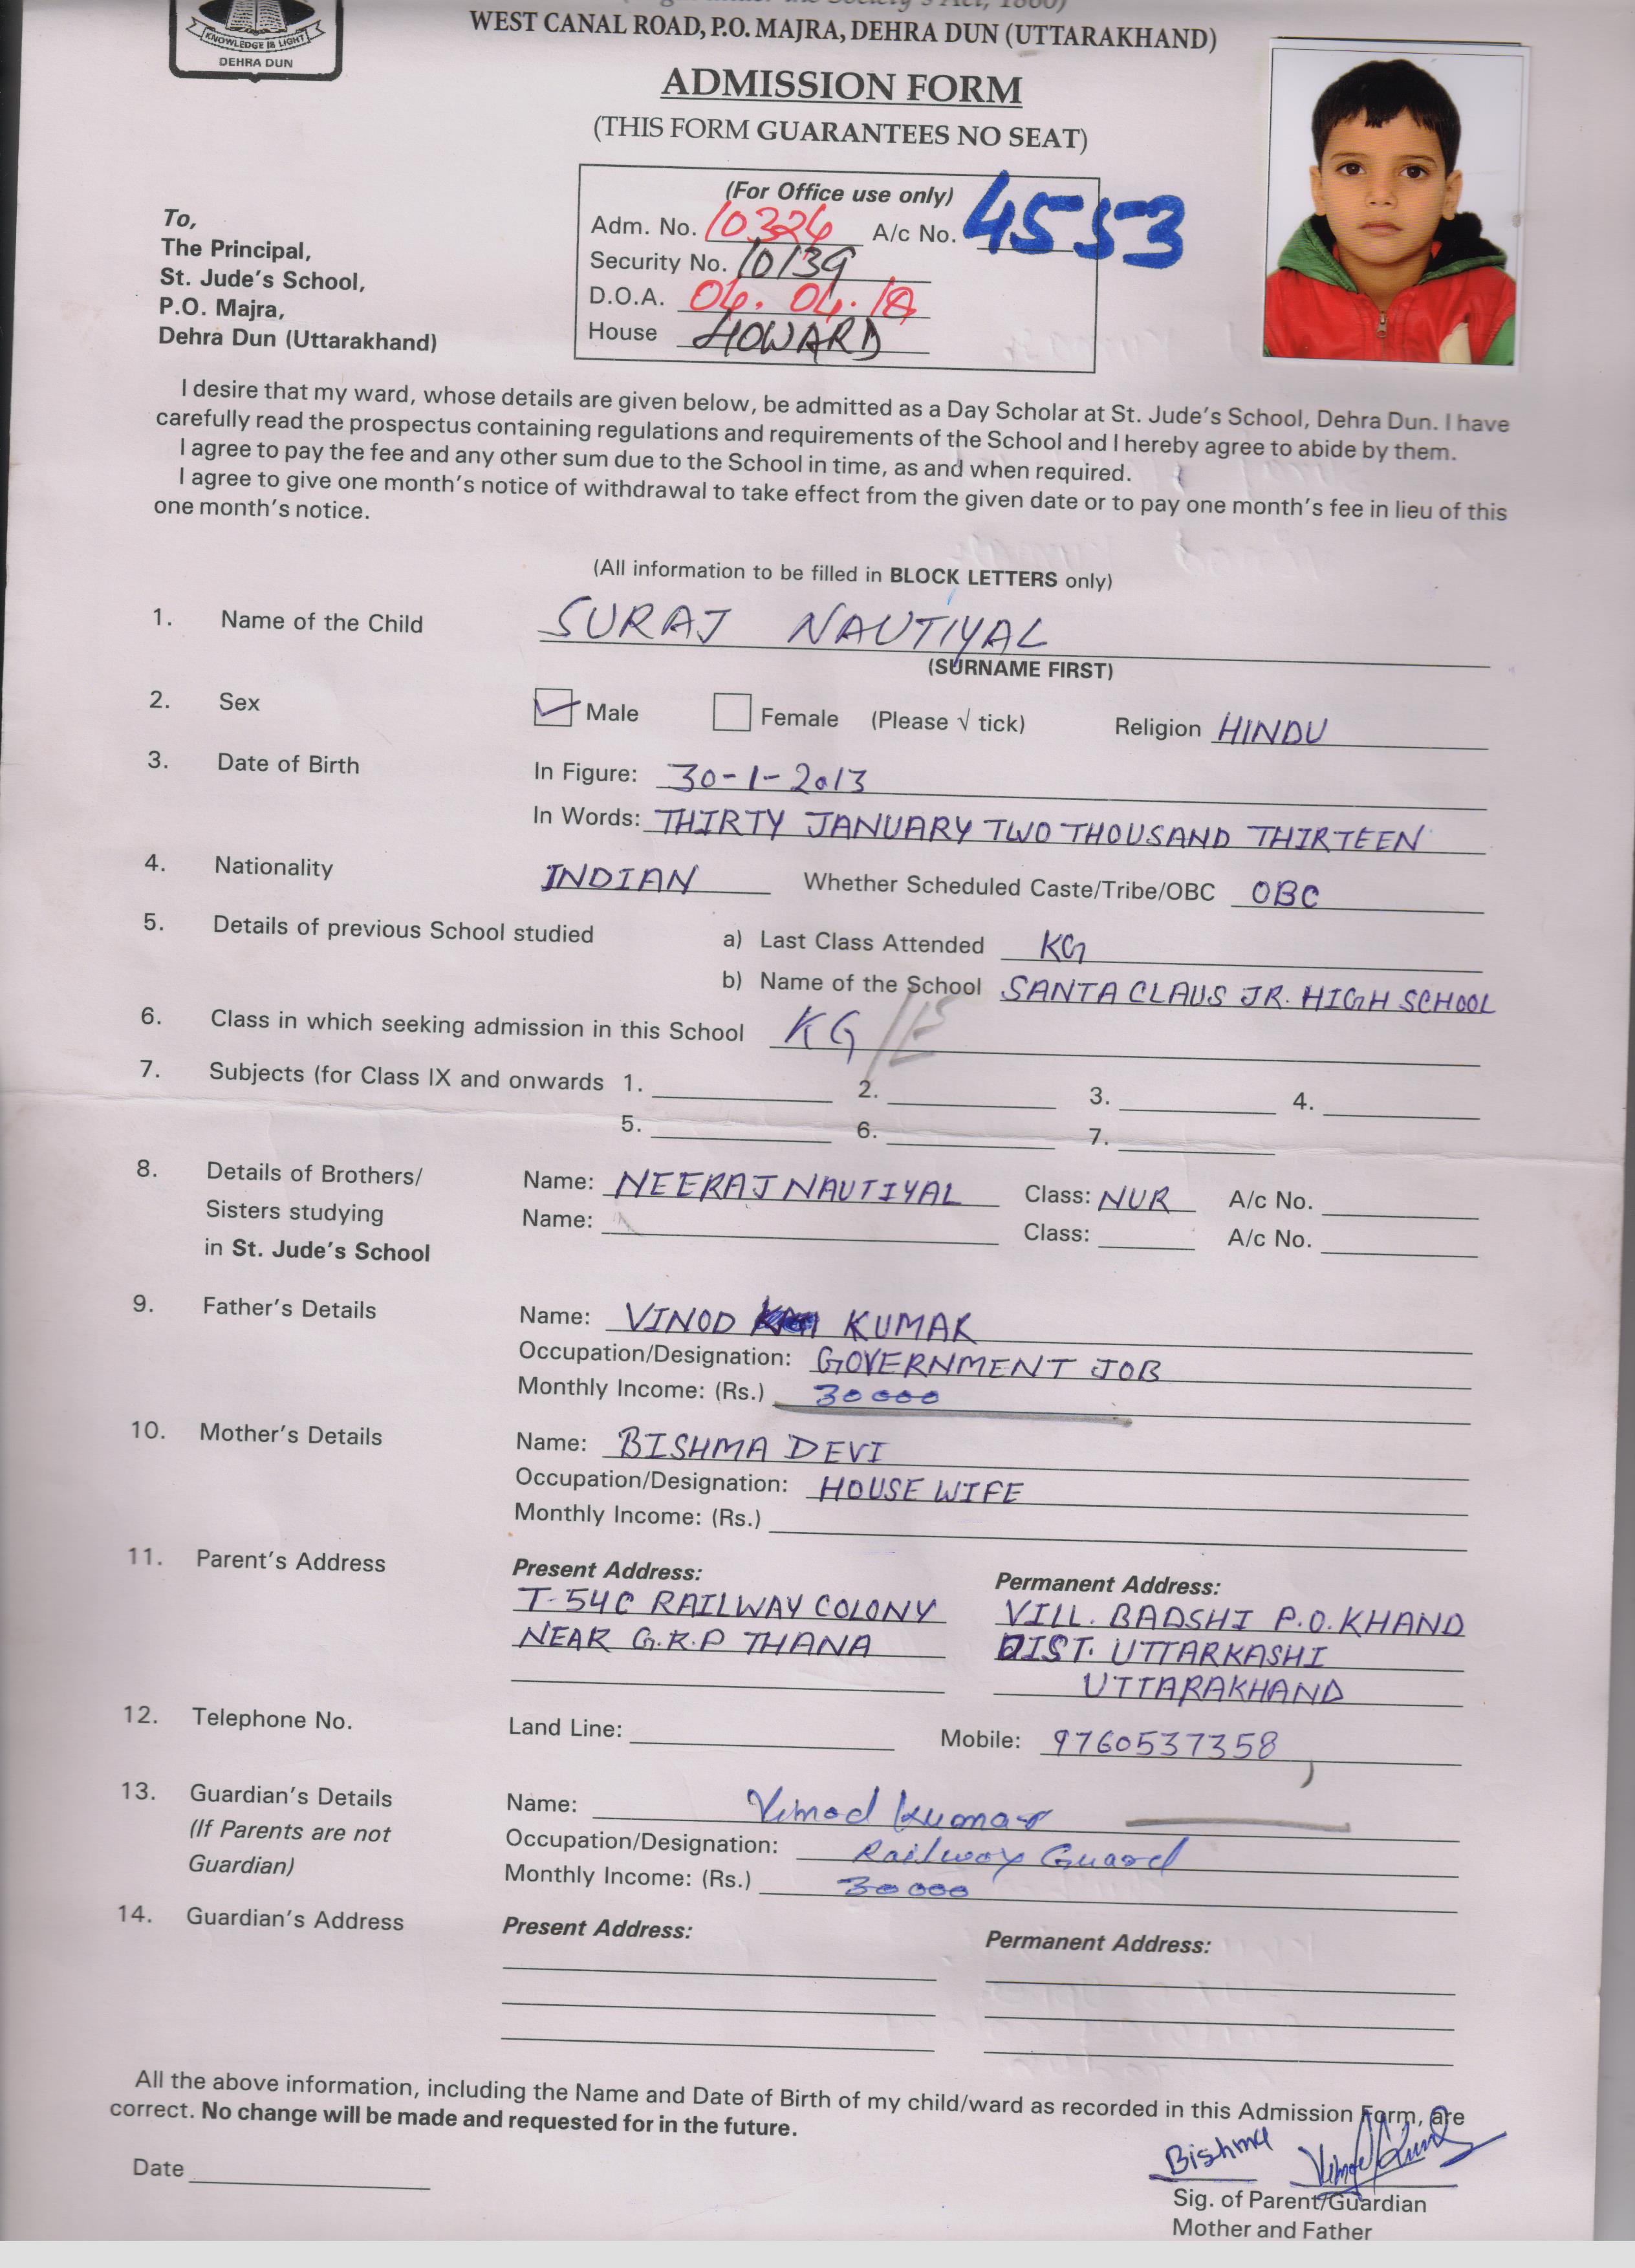 WEST CANAL ROAD, P.O. MAJRA, DEHRA DUN (UTTARAKHAND)
KNOWLEDGE IS LIGHT
DEHRA DUN
ADMISSION FORM
(THIS FORM GUARANTEES NO SEAT)
(For Office use only)
Adm. No. 10324 A/c No. 4553
Security No. 10139
D.O.A. 04. 04. 18
House HOWARD
To,
The Principal,
St. Jude's School,
P.O. Majra,
Dehra Dun (Uttarakhand)
I desire that my ward, whose details are given below, be admitted as a Day Scholar at St. Jude's School, Dehra Dun. I have
carefully read the prospectus containing regulations and requirements of the School and I hereby agree to abide by them.
I agree to pay the fee and any other sum due to the School in time, as and when required.
I agree to give one month's notice of withdrawal to take effect from the given date or to pay one month's fee in lieu of this
one month's notice.
(All information to be filled in BLOCK LETTERS only)
1. Name of the Child SURAJ NAUTIYAL
(SURNAME FIRST)
2. Sex Male Female (Please √ tick) Religion HINDU
3. Date of Birth In Figure: 30-1-2013
In Words: THIRTY JANUARY TWO THOUSAND THIRTEEN
4. Nationality INDIAN Whether Scheduled Caste/Tribe/OBC OBC
5. Details of previous School studied a) Last Class Attended KG
b) Name of the School SANTA CLAUS JR. HIGH SCHOOL
6. Class in which seeking admission in this School KG/E
7. Subjects (for Class IX and onwards 1. 2. 3. 4.
5. 6. 7.
8. Details of Brothers/ Name: NEERAJ NAUTIYAL Class: NUR A/c No.
Sisters studying Name: Class: A/c No.
in St. Jude's School
9. Father's Details Name: VINOD KUMAR
Occupation/Designation: GOVERNMENT JOB
Monthly Income: (Rs.) 30000
10. Mother's Details Name: BISHMA DEVI
Occupation/Designation: HOUSE WIFE
Monthly Income: (Rs.)
11. Parent's Address Present Address: Permanent Address:
T-54C RAILWAY COLONY VILL. BADSHI P.O. KHAND
NEAR G.R.P THANA DIST. UTTARKASHI
UTTARAKHAND
12. Telephone No. Land Line: Mobile: 9760537358
13. Guardian's Details Name: Vinod Kumar
(If Parents are not Occupation/Designation: Railway Guard
Guardian) Monthly Income: (Rs.) 30000
14. Guardian's Address Present Address: Permanent Address:
All the above information, including the Name and Date of Birth of my child/ward as recorded in this Admission Form, are
correct. No change will be made and requested for in the future.
Bishma Vinod Kumar
Date
Sig. of Parent/Guardian
Mother and Father